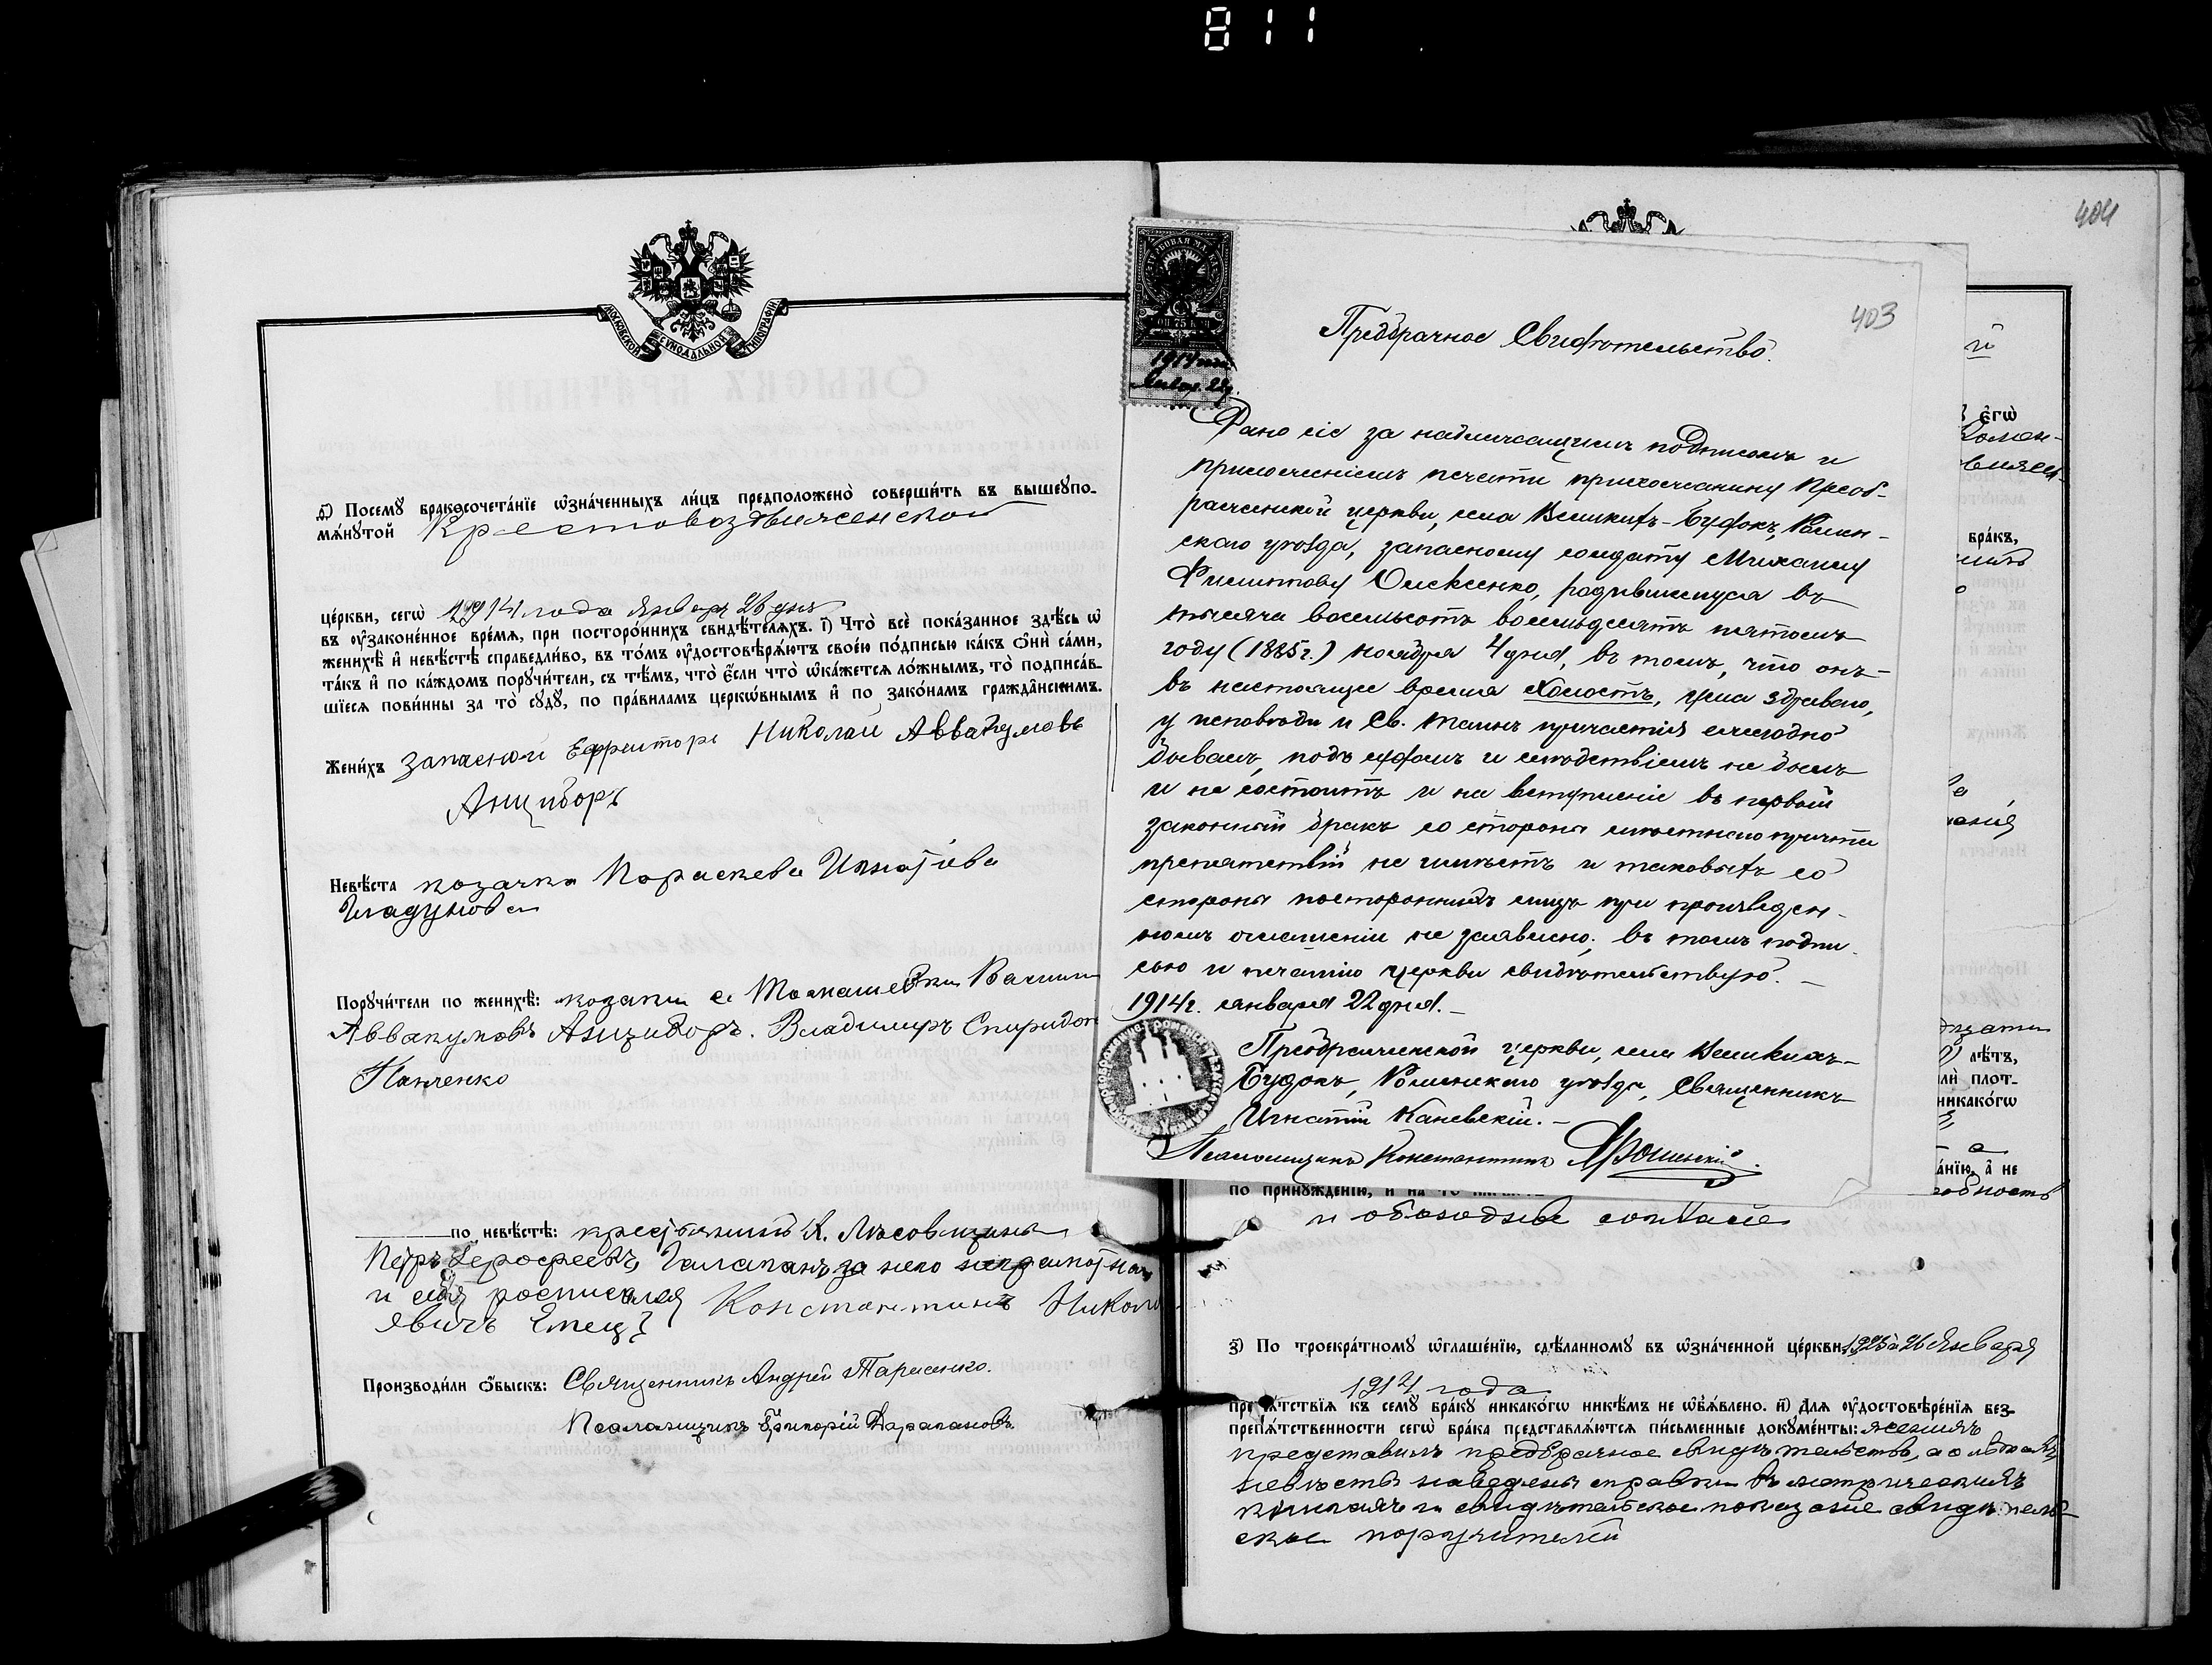 811
МОСКОВСКОЙ СѴНОДАЛЬНОЙ ТИПОГРАФІИ
д҃) Посемꙋ̀ бракосочета́нїе ѡ҆зна́ченныхъ ли́цъ предположено̀ соверши́ть въ вышеꙋпо-
мѧ́нꙋтой Крестовоздвиженской
це́ркви, сегѡ̀ 1914 года Января 26 дня
въ ᲂу҆зако́ненное вре́мѧ, при посторо́ннихъ свидѣ́телѧхъ. і҃) Что̀ всѐ пока́занное здѣ́сь ѡ҆
женихѣ̀ и҆ невѣ́стѣ справедли́во, въ то́мъ ᲂу҆достовѣрѧ́ютъ свое́ю по́дписью ка́къ ѻ҆нѝ са́ми,
та́къ и҆ по ка́ждомъ порꙋчи́тели, съ тѣ́мъ, что̀ є҆́сли что̀ ѡ҆ка́жетсѧ ло́жнымъ, то̀ подписа́в-
шїесѧ пови́нны за то̀ сꙋдꙋ̀, по пра́виламъ церко́внымъ и҆ по зако́намъ гражда́нскимъ.
Жени́хъ запасной Ефрейторъ Николай Аввакумовъ
Анциборъ
Невѣ́ста козачка Параскева Игнатіева
Гладунова
Порꙋчи́тели по женихѣ̀: козаки с. Томашевки
Аввакумовъ Анциборъ. Владимиръ Спиридон
Панченко
по невѣ́стѣ: крестьянинъ Х. Лѣсовщина
Петръ Ерофеевъ Галаганъ за него неграмотнаго
и себя росписался Константинъ Никола
евичъ Емецъ
Производи́ли ѻ҆́быскъ: Священникъ Андрей Тарасенко.
Псаломщикъ Григорій Барабановъ
404
403
1914 года
Январ. 22 д.
Предбрачное Свидѣтельство.
Дано сіе за надлежащимъ подписомъ и
приложеніемъ печати прихожанину Преоб-
раженской церкви, села Великихъ-Будокъ, Ромен-
скаго уѣзда, запасному солдату Михаилу
Филиппову Олексенко, родившемуся въ
тысяча восемьсотъ восемьдесятъ пятомъ
году (1885 г.) ноября 4 дня, въ томъ, что онъ
въ настоящее время холостъ, ума здраваго,
у исповѣди и Св. таинъ причастія ежегодно
бываетъ, подъ судомъ и слѣдствіемъ не былъ
и не состоитъ и на вступленіе въ первый
законный бракъ со стороны мѣстнаго причта
препятствій не имѣетъ и таковыхъ со
стороны постороннихъ лицъ при произведен-
номъ оглашеніи не заявлено; въ томъ подпи-
сью и печатію церкви свидѣтельствую. –
1914 г. января 22 дня. –
Преображенской церкви, села Великихъ-
Будокъ, Роменскаго уѣзда, Священникъ
Игнатій Каневскій. –
Псаломщикъ Константинъ Ярошинскій.
є҆гѡ̀
бра́къ,
лѣ́тъ,
никако́гѡ
а́нїю, а҆ не
по принꙋжде́нїю, и҆ на то̀
и обоюдное согласіе
з҃) По троекра́тномꙋ ѡ҆глаше́нїю, сдѣ́ланномꙋ въ ѡ҆зна́ченной це́ркви 19, 25 и 26 Января
1914 года
препѧ́тствїѧ къ семꙋ̀ бра́кꙋ никако́гѡ никѣ́мъ не ѡ҆б̾ѧ́влено. и҃) Длѧ ᲂу҆достовѣре́нїѧ без-
препѧ́тственности сегѡ̀ бра́ка представлѧ́ютсѧ пи́сьменные докꙋме́нты: женихъ
представилъ предбрачное свидѣтельство, а о лѣтахъ
невѣсты наведены справки въ метрическихъ
книгахъ и свидѣтельское показаніе
поручителей